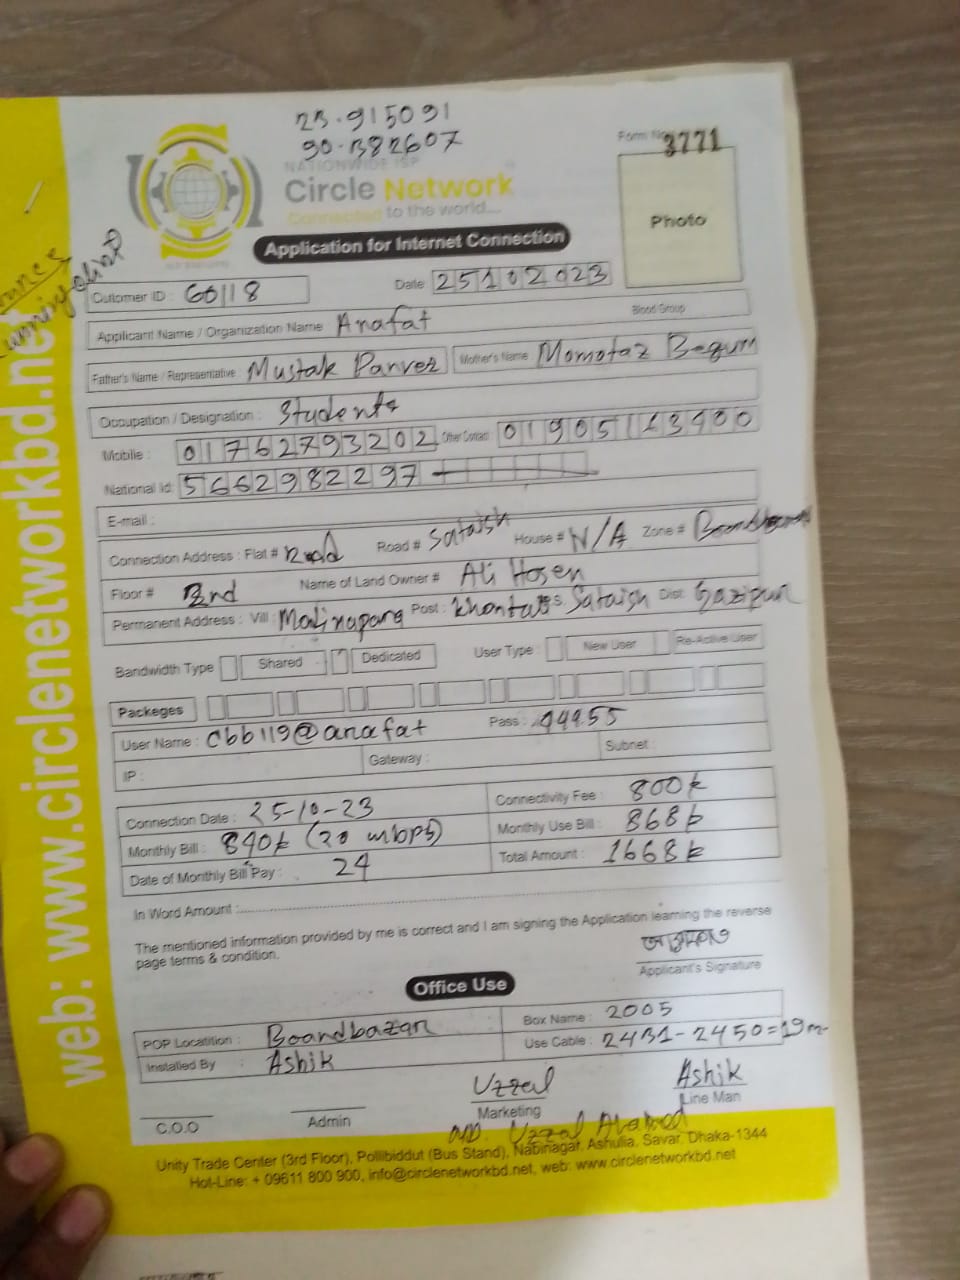 23.915091
90.382607
Form No 3771
NATIONWIDE ISP
Circle Network
Connected to the world....
Photo
Application for Internet Connection
Cutomer ID : 60118
Date 25102023
Blood Group
Applicant Name / Organization Name Arafat
Father's Name / Representative : Mustak Parvez Mother's Name Momotaz Begum
Occupation / Designation : Students
Mobile : 01762793202 Other Contact :
National Id: 5662982297
E-mail :
Connection Address : Flat # Road # Sataish House # N/A Zone #
Floor # 2nd Name of Land Owner # Ali Hosen
Permanent Address : Vill : Post : P.S. Sataish Dist: Gazipur
Bandwidth Type Shared Dedicated User Type : New User Re-Active User
Packeges
User Name : cbb119@arafat Pass :
IP : Gateway : Subnet :
Connection Date : 25-10-23 Connectivity Fee : 800
Monthly Bill : 840 (20 mbps) Monthly Use Bill : 868
Date of Monthly Bill Pay : 24 Total Amount : 1668
In Word Amount :
The mentioned information provided by me is correct and I am signing the Application learning the reverse
page terms & condition.
Applicant's Signature
Office Use
POP Locatition : Boardbazar Box Name : 2005
Installed By : Ashik Use Cable : 2431-2450=19m
Uzzal Ashik
C.O.O Admin Marketing Line Man
MD. Uzzal Ahamed
Unity Trade Center (3rd Floor), Pollibiddut (Bus Stand), Nabinagar, Ashulia, Savar, Dhaka-1344
Hot-Line: + 09611 800 900, info@circlenetworkbd.net, web: www.circlenetworkbd.net
web: www.circlenetworkbd.net